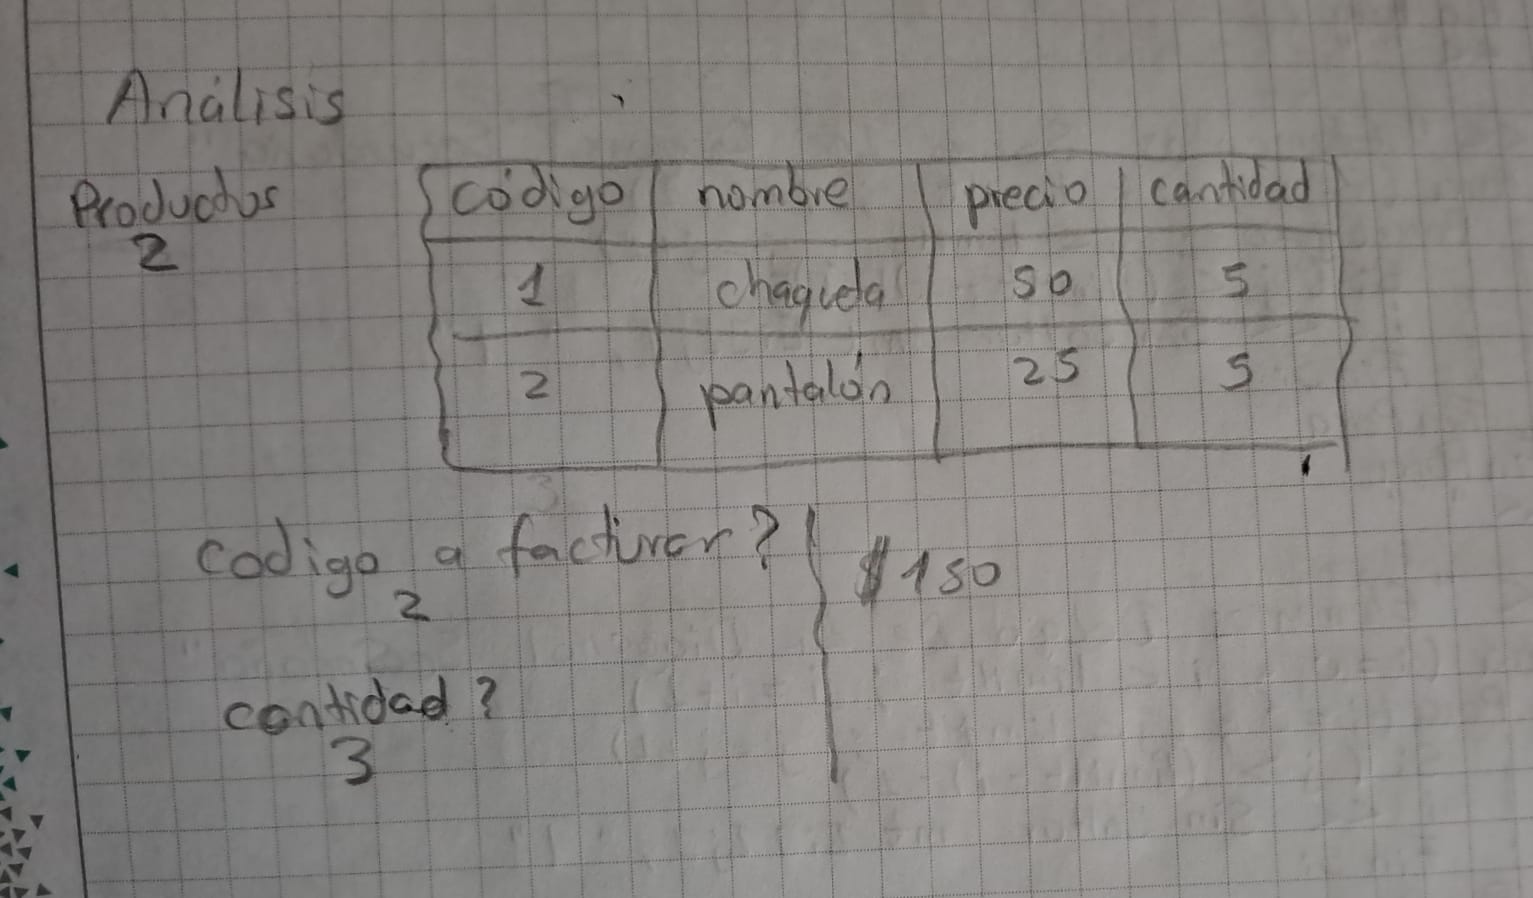 Análisis
Productos
2
código nombre precio cantidad
1 chaqueta 50 5
2 pantalón 25 5
codigo a facturar?
2
$150
cantidad?
3